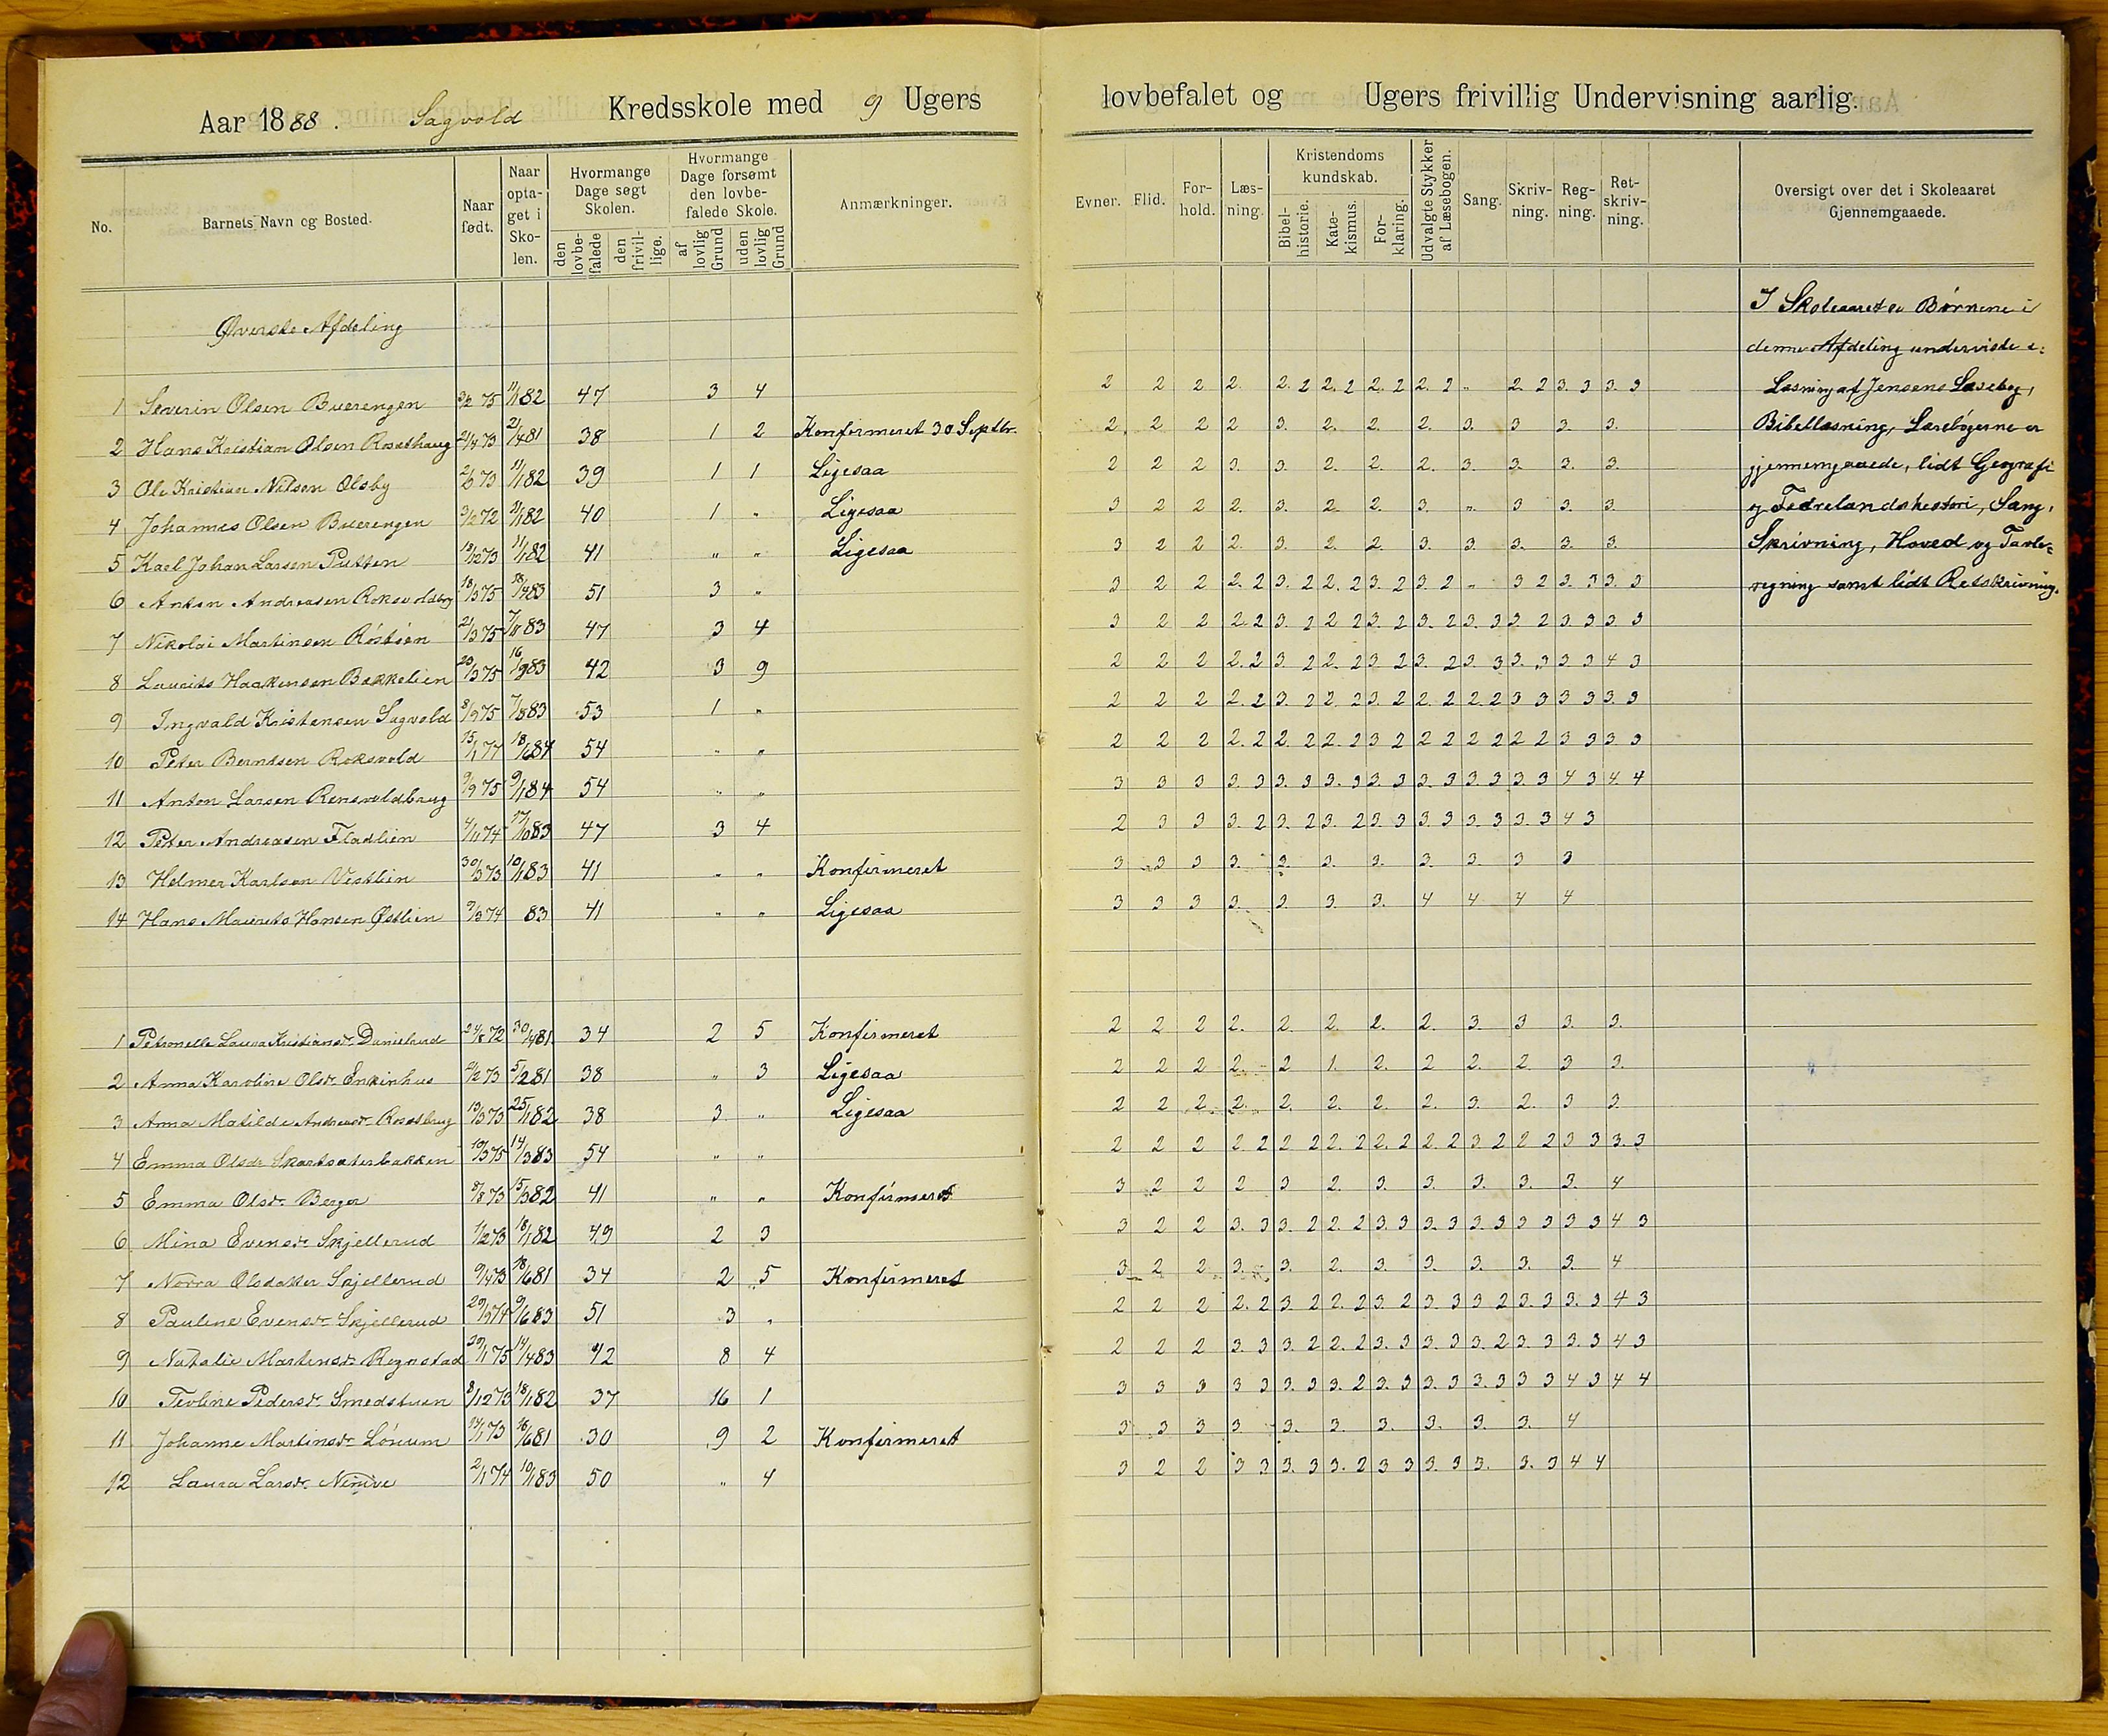 Aar 1888. Sagvold Kredsskole med 9 Ugers lovbefalet og Ugers frivillig Undervisning aarlig.
No. Barnets Navn og Bosted. Naar født. Naar opta-get i Sko-len. Hvormange Dage søgt Skolen. den lovbe-falede den frivil-lige. Hvormange Dage forsømt den lovbe-falede Skole. af lovlig Grund uden lovlig Grund Anmærkninger.
Evner. Flid. For-hold. Læs-ning. Kristendoms kundskab. Bibel-historie. Kate-kismus. For-klaring. Udvalgte Stykker af Læsebogen. Sang. Skriv-ning. Reg-ning. Ret-skriv-ning. Oversigt over det i Skoleaaret Gjennemgaaede.
Øverste Afdeling
1 Severin Olsen Buerengen 3/2 75 11/1 82 47 3 4
2 Hans Kristian Olsen 21/4 81 38 1 2 Konfirmeret 30 Septbr.
3 Ole Kristian Nilsen Olsby 11/1 82 39 1 1 Ligesaa
4 Johannes Olsen Buerengen 3/2 72 82 40 1 " Ligesaa
5 Karl Johan Larsen Putten 13/12 73 11/1 82 41 " " Ligesaa
6 Anton Andreasen 18/3 75 18/4 83 51 3 "
7 Nikolai Martinsen Röstöen 21/3 75 83 47 3 4
8 Laurits Haakensen Bakkelien 23/3 75 83 42 3 9
9 Ingvald Kristensen Sagvold 8/9 75 7/8 83 53 1 "
10 Peter Berntsen Roksvold 15/1 74 18/6 84 54 " "
11 Anton Larsen 9/9 75 9/1 84 54 " "
12 Peter Andreasen Fladlien 4/11 74 17/10 83 47 3 4
13 Helmer Karlsen Vestlien 30/3 73 10/1 83 41 " " Konfirmeret
14 Hans Maurits Hansen Østlien 9/3 74 83 41 " " Ligesaa
1 Petronelle Laura Kristiansdr. Danielrud 24/8 72 30/4 81 34 2 5 Konfirmeret
2 Anna Karoline Olsdr. Enkinhus 73 5/2 81 38 " 3 Ligesaa
3 Anna Matilde Andreasdr. 13/3 73 25/1 82 38 3 " Ligesaa
4 Emma Olsdr. Skartsæterbakken 10/3 75 14/3 83 54 " "
5 Emma Olsdr. Berger 8/8 73 15/3 82 41 " " Konfirmeret
6 Mina Evensdr. Skjellerud 1/2 73 18/1 82 49 2 3
7 Norra Olsdatter Skjellerud 9/4 73 18/6 81 34 2 5 Konfirmeret
8 Pauline Evensdr. Skjellerud 29/3 74 9/6 83 51 3 "
9 Natalie Martinsdr. Regnstad 29/1 75 14/4 83 42 8 4
10 Tevline Pedersdr. Smedstuen 8/12 73 18/1 82 37 16 1
11 Johanne Martinsdr. Lönum 14/1 73 16/6 81 30 9 2 Konfirmeret
12 Laura Larsdr. Ninive 2/1 74 10/1 83 50 " 4
2 2 2 2. 2. 2 2. 2 2. 2 2. 2 " 2. 2 3. 3 3. 3
2. 2. 2 2 3. 2. 2. 2. 3. 3 3. 3.
2 2 2 3. 3. 2. 2. 2. 3. 3. 3. 3.
3 2 2 2. 3. 2 2. 3. " 3 3. 3.
3 2 2 2. 3. 2. 2. 3. 3. 3. 3. 3.
3 2 2 2. 2 3. 2 2. 2 3. 2 3. 2 " 3 2 3. 3 3. 3
3 2 2 2. 2 3. 2 2. 2 3. 2 3. 2 3. 3 3 2 3 3 3. 3
2 2 2 2. 2 3. 2 2. 2 3. 2 3. 2 3. 3 3. 3 3 3 4 3
2 2 2 2. 2 3. 2 2. 2 3. 2 2. 2 2. 2 3 3 3 3 3. 3
2 2 2 2. 2 2. 2 2. 2 3 2 2 2 2 2 2 2 3 3 3 3
3 3 3 3. 3 3. 3 3. 3 3. 3 3. 3 3. 3 3. 3 4 3 4. 4
2 3 3 3. 2 3. 2 3. 2 3. 3 3. 3 3. 3 3. 3 4 3
3 3 3 3. 3. 3. 3. 3. 3. 3 3
3 3 3 3. 3. 3. 3. 4 4 4 4
2 2 2 2. 2. 2. 2. 2. 3 3 3. 3.
2 2 2 2. 2 1. 2. 2 2. 2. 3 3.
2 2 2. 2. 2. 2. 2. 2. 3. 2. 3 3.
2 2 2 2 2 2 2 2. 2 2. 2 2. 2 3 2 2 2 3 3 3. 3
3 2 2 2 3 2. 3. 3. 3. 3. 3. 4
3 2 2 3. 3 3. 2 2. 2 3. 3 3. 3 3. 3 3 3 3 3 4 3
3 2 2 3. 3. 2. 3. 3. 3. 3. 3. 4
2 2 2 2. 2 3 2 2. 2 3 2 3. 3 3 2 3. 3 3. 3 4 3
2 2 2 3 3 3 2 2. 2 3. 3 3. 3 3. 2 3. 3 3. 3 4 3
3 3 3 3 3 3. 3 3. 2 3. 3 3. 3 3. 3 3 3 4 3 4 4
3 3 3 3 3. 3. 3. 3. 3. 3. 4
3 2 2 3 3 3. 3 3. 2 3 3 3. 3 3. 3. 3 4 4
I Skoleaaret er Börnene i
denne Afdeling underviste i:
Læsning af Jensens Læsebog,
Bibellæsning, Lærebögerne er
gjennemgaaede, lidt Geografi
og Fedrelandshestori, Sang,
Skrivning, Hoved og Tavle-
regning samt lidt Retskrivning.